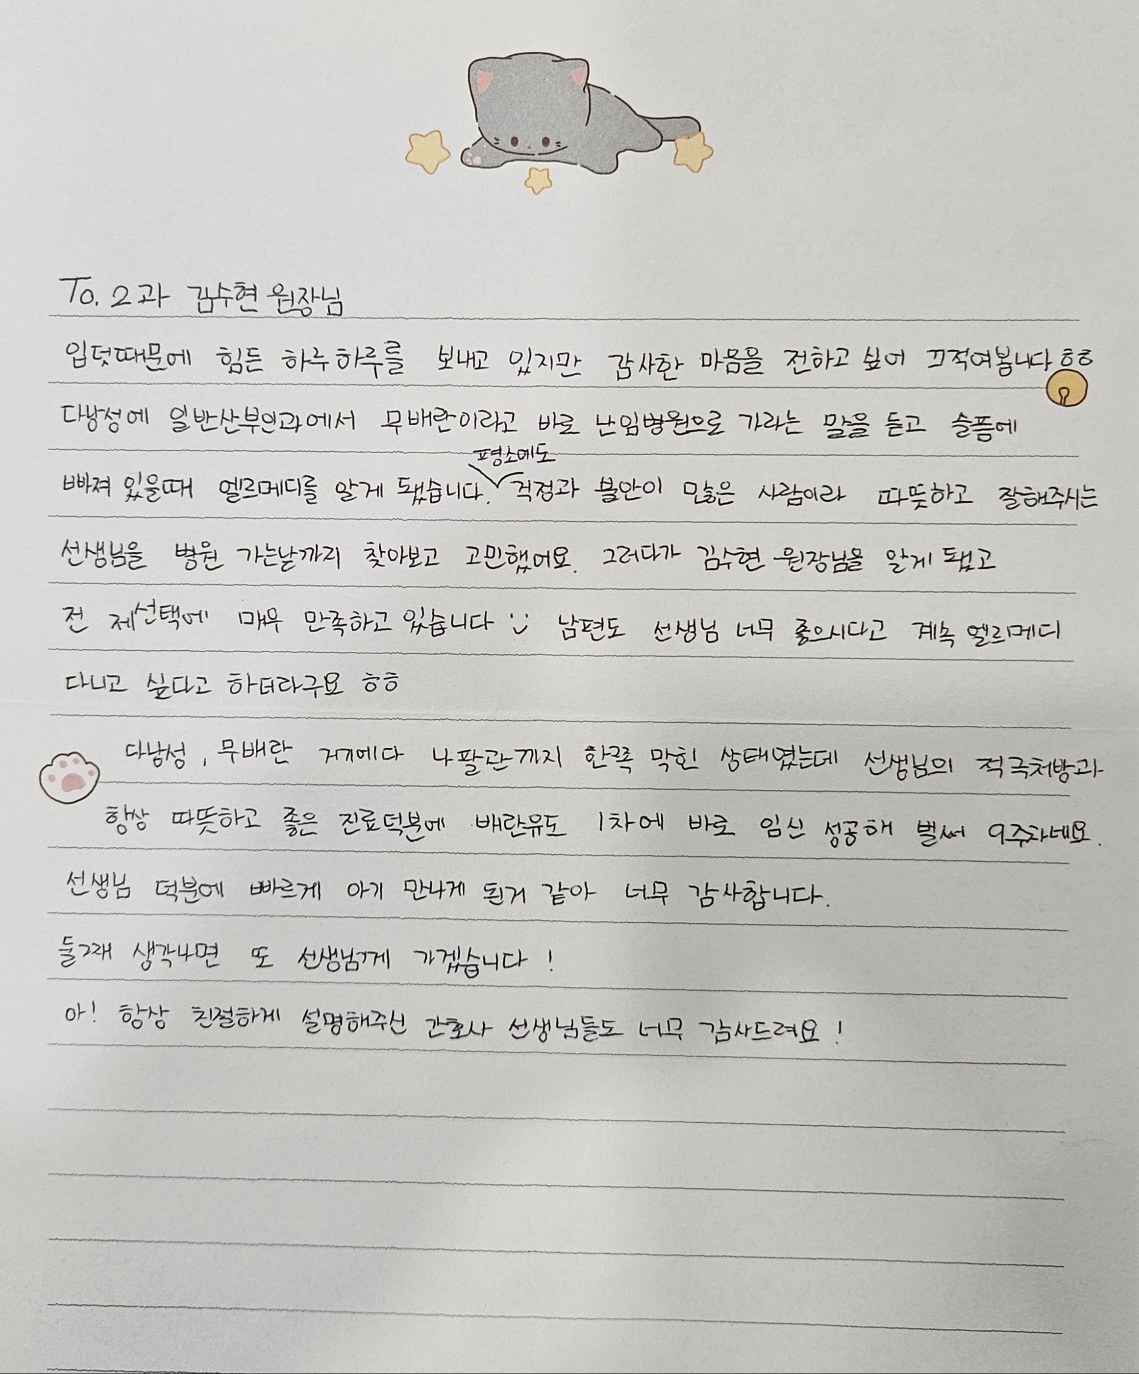 To. 2과 김수현 원장님
입덧때문에 힘든 하루하루를 보내고 있지만 감사한 마음을 전하고 싶어 끄적여봅니다ㅎㅎ
다낭성에 일반산부인과에서 무배란이라고 바로 난임병원으로 가라는 말을 듣고 슬픔에
평소에도
빠져 있을때 엘르메디를 알게 됐습니다. 걱정과 불안이 많은 사람이라 따뜻하고 잘해주시는
선생님을 병원 가는날까지 찾아보고 고민했어요. 그러다가 김수현 원장님을 알게 됐고
전 제선택에 매우 만족하고 있습니다 :) 남편도 선생님 너무 좋으시다고 계속 엘르메디
다니고 싶다고 하더라구요 ㅎㅎ
다낭성, 무배란 거기에다 나팔관까지 한쪽 막힌 상태였는데 선생님의 적극처방과
항상 따뜻하고 좋은 진료덕분에 배란유도 1차에 바로 임신 성공해 벌써 9주차네요.
선생님 덕분에 빠르게 아기 만나게 된거 같아 너무 감사합니다.
둘째 생각나면 또 선생님께 가겠습니다!
아! 항상 친절하게 설명해주신 간호사 선생님들도 너무 감사드려요!